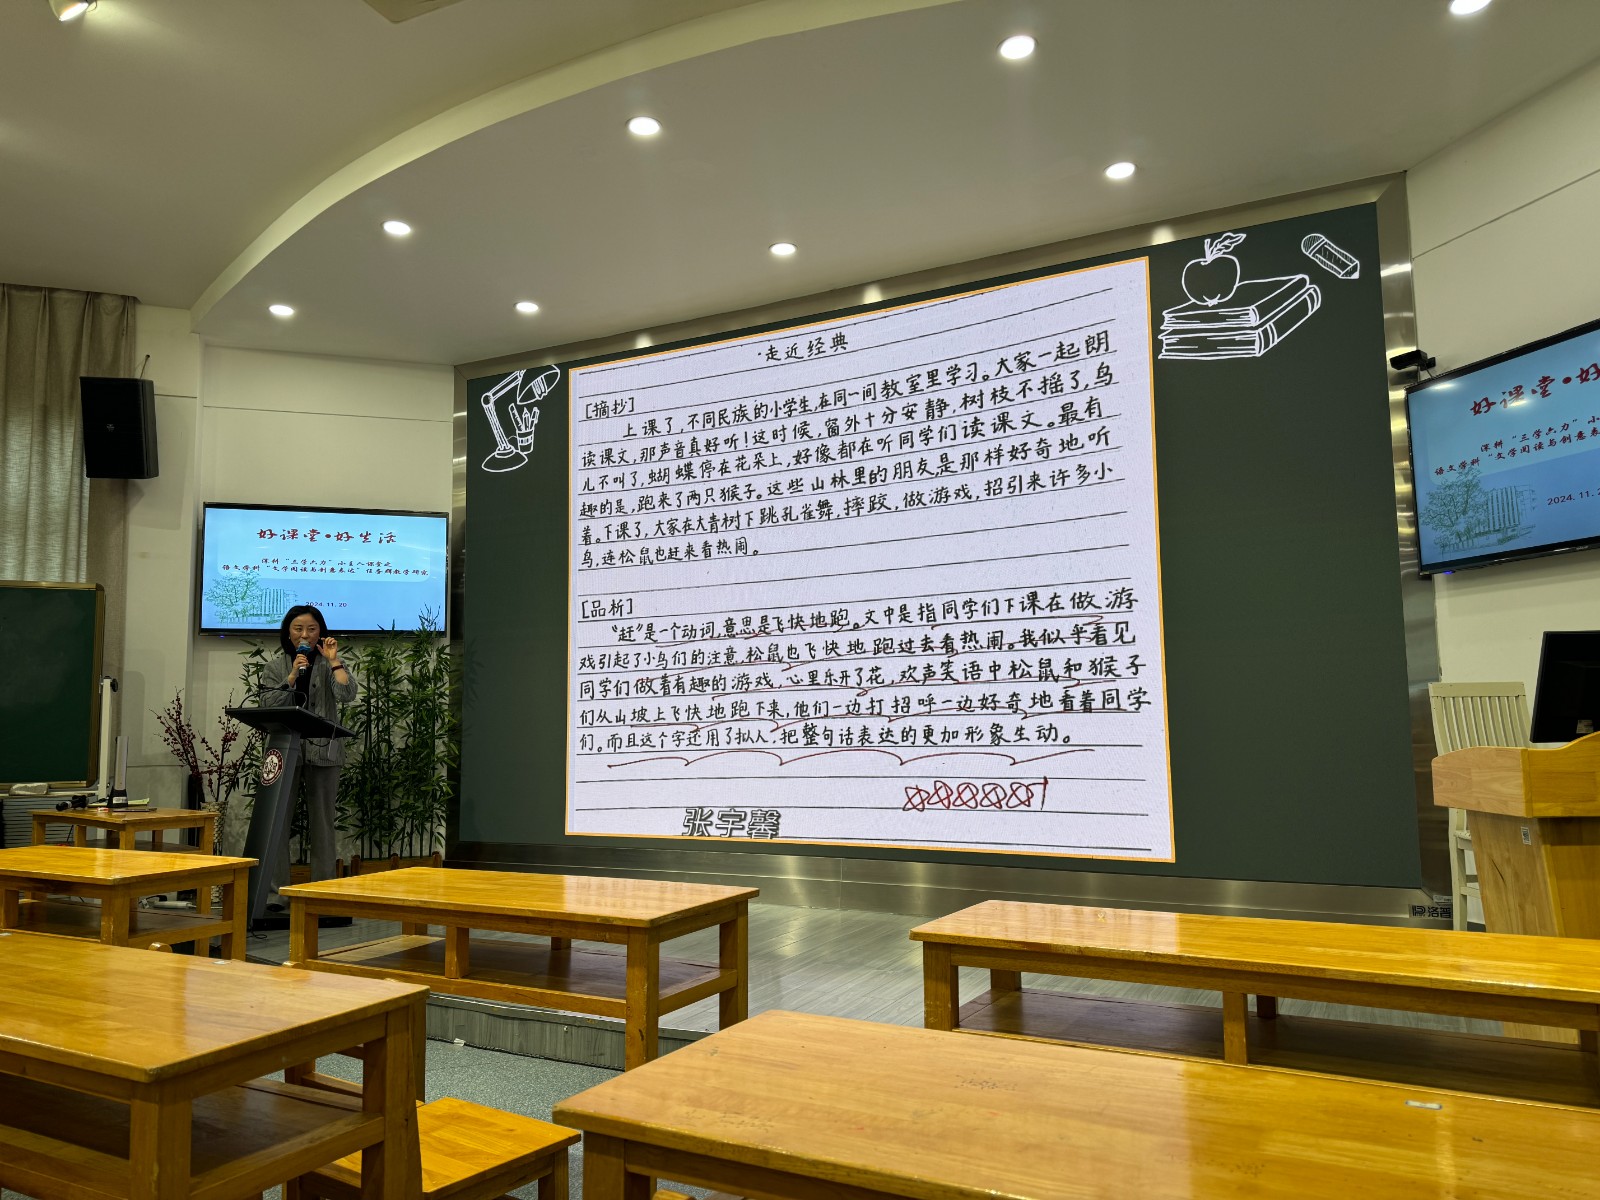 ·走近经典
[摘抄]
上课了,不同民族的小学生,在同一间教室里学习。大家一起朗
读课文,那声音真好听!这时候,窗外十分安静,树枝不摇了,鸟
儿不叫了,蝴蝶停在花朵上,好像都在听同学们读课文。最有
趣的是,跑来了两只猴子。这些山林里的朋友是那样好奇地听
着。下课了,大家在大青树下跳孔雀舞,摔跤,做游戏,招引来许多小
鸟,连松鼠也赶来看热闹。
[品析]
“赶”是一个动词,意思是飞快地跑。文中是指同学们下课在做游
戏引起了小鸟们的注意,松鼠也飞快地跑过去看热闹。我似乎看见
同学们做着有趣的游戏,心里乐开了花,欢声笑语中松鼠和猴子
们从山坡上飞快地跑下来,他们一边打招呼一边好奇地看着同学
们。而且这个字还用了拟人,把整句话表达的更加形象生动。
张宇馨
好课堂•好生活
深耕“三学六力”小主人课堂之
语文学科“文学阅读与创意表达”任务群教学研究
2024.11.20
好课堂•好
深耕“三学六力”小
语文学科“文学阅读与创意表
2024.11.2
洛普